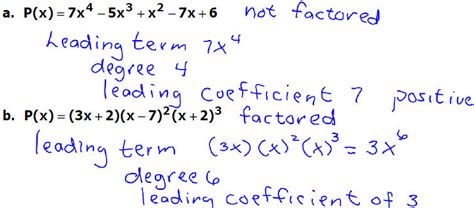 a. P(x) = 7x⁴ – 5x³ + x² – 7x + 6 not factored
Leading term 7x⁴
degree 4
leading coefficient 7 positive
b. P(x) = (3x + 2)(x – 7)²(x + 2)³ factored
leading term (3x)(x)²(x)³ = 3x⁶
degree 6
leading coefficient of 3